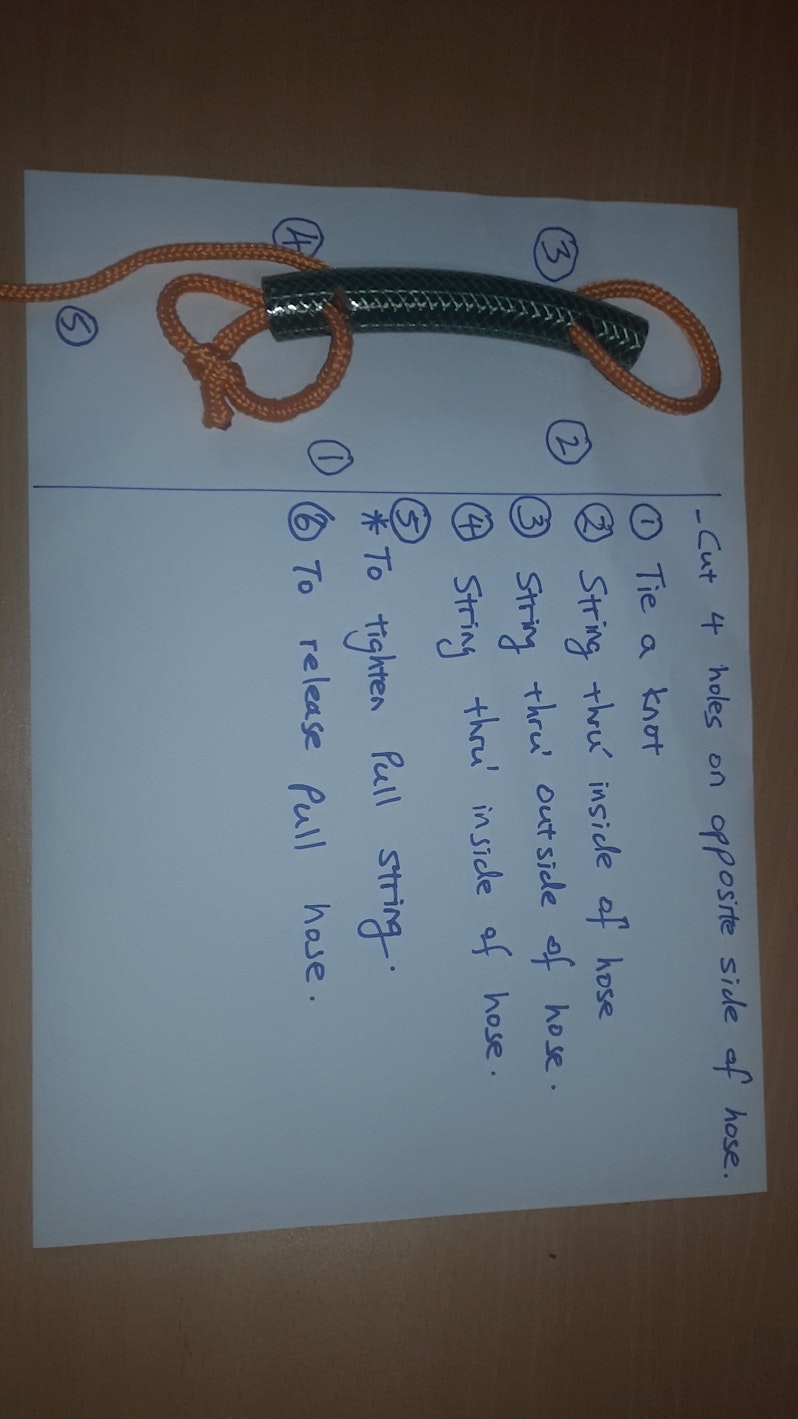 ④
③
⑤
①
②
- Cut 4 holes on opposite side of hose.
① Tie a knot
② String thru' inside of hose
③ String thru' outside of hose.
④ String thru' inside of hose.
⑤
* To tighten Pull string.
⑥ To release Pull hose.